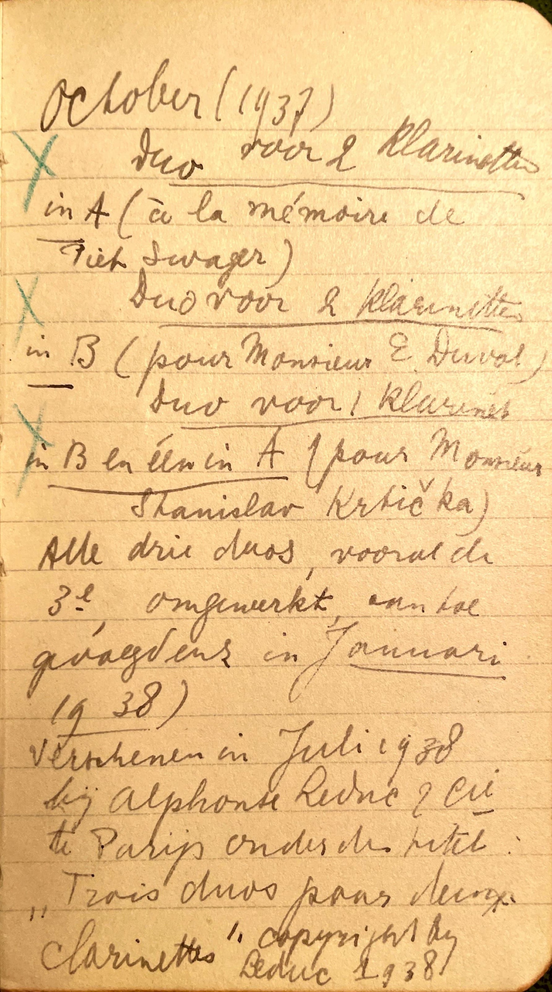 October (1937)
Duo voor 2 Klarinetten
in A (à la mémoire de
Piet Swager)
Duo voor 2 Klarinetten
in B (pour Monsieur E. Duval)
Duo voor 1 Klarinet
in B en één in A (pour Monsieur
Stanislav Krtička)
Alle drie duos, vooral de
3e, omgewerkt, aan toe
gevoegd enz in Januari
1938)
Verschenen in Juli 1938
bij Alphonse Leduc & Cie
te Parijs onder den titel:
„Trois duos pour deux
clarinettes" copyright by
Leduc 1938